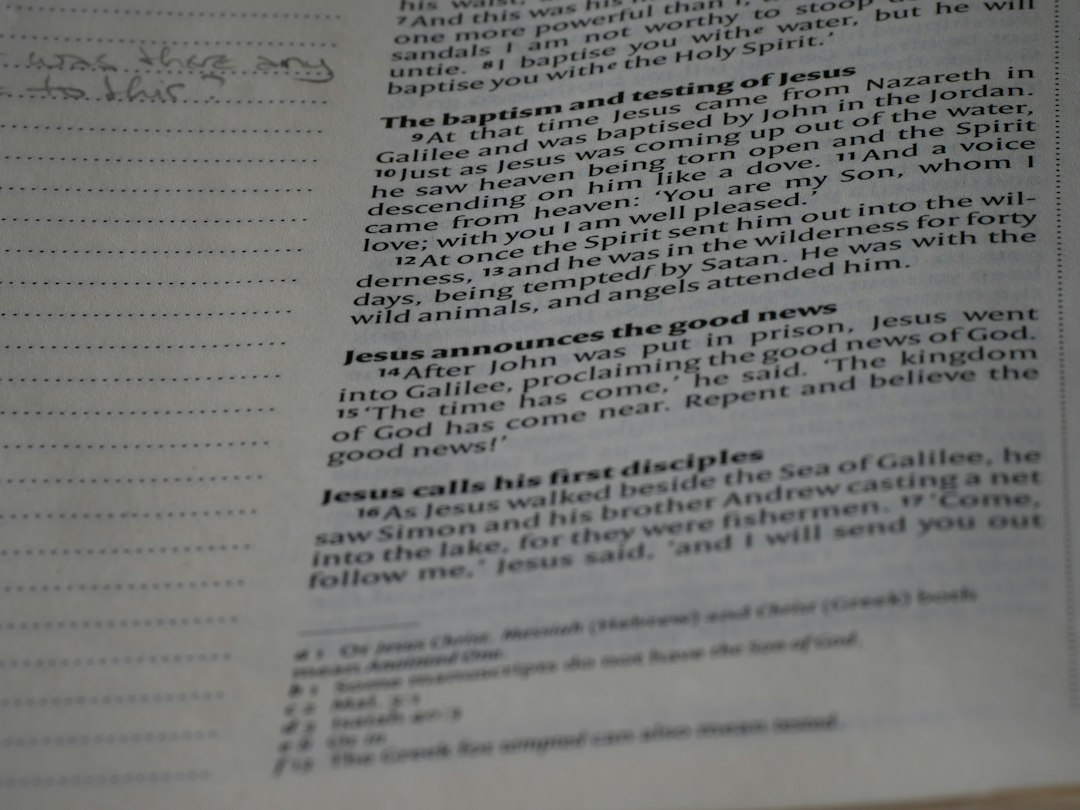 was there any
to this?
his waist.
⁷And this was his
one more powerful than I,
sandals I am not worthy to stoop
untie. ⁸I baptise you withᵉ water, but he will
baptise you withᵉ the Holy Spirit.’
The baptism and testing of Jesus
⁹At that time Jesus came from Nazareth in
Galilee and was baptised by John in the Jordan.
¹⁰Just as Jesus was coming up out of the water,
he saw heaven being torn open and the Spirit
descending on him like a dove. ¹¹And a voice
came from heaven: ‘You are my Son, whom I
love; with you I am well pleased.’
¹²At once the Spirit sent him out into the wil-
derness, ¹³and he was in the wilderness for forty
days, being temptedf by Satan. He was with the
wild animals, and angels attended him.
Jesus announces the good news
¹⁴After John was put in prison, Jesus went
into Galilee, proclaiming the good news of God.
¹⁵‘The time has come,’ he said. ‘The kingdom
of God has come near. Repent and believe the
good news!’
Jesus calls his first disciples
¹⁶As Jesus walked beside the Sea of Galilee, he
saw Simon and his brother Andrew casting a net
into the lake, for they were fishermen. ¹⁷‘Come,
follow me,’ Jesus said, ‘and I will send you out
a 1 Or Jesus Christ. Messiah (Hebrew) and Christ (Greek) both
mean Anointed One.
b 1 Some manuscripts do not have the Son of God.
c 2 Mal. 3:1
d 3 Isaiah 40:3
e 8 Or in
f 13 The Greek for tempted can also mean tested.